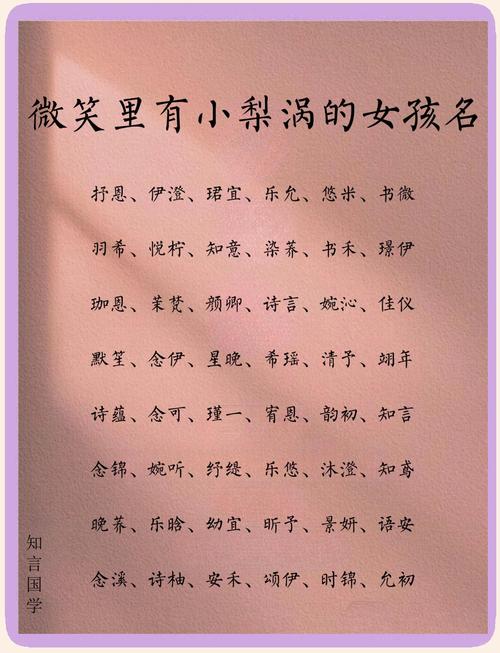 微笑里有小梨涡的女孩名
抒恩、伊澄、珺宜、乐允、悠米、书微
羽希、悦柠、知意、染荞、书禾、璟伊
珈恩、茉梵、颜卿、诗言、婉沁、佳仪
默笙、念伊、星晚、希瑶、清予、翊年
诗蕴、念可、瑾一、宥恩、韵初、知言
念锦、婉听、纾缇、乐悠、沐澄、知鸢
晚荞、乐晗、幼宜、昕予、景妍、语安
念溪、诗柚、安禾、颂伊、时锦、允初
知言国学